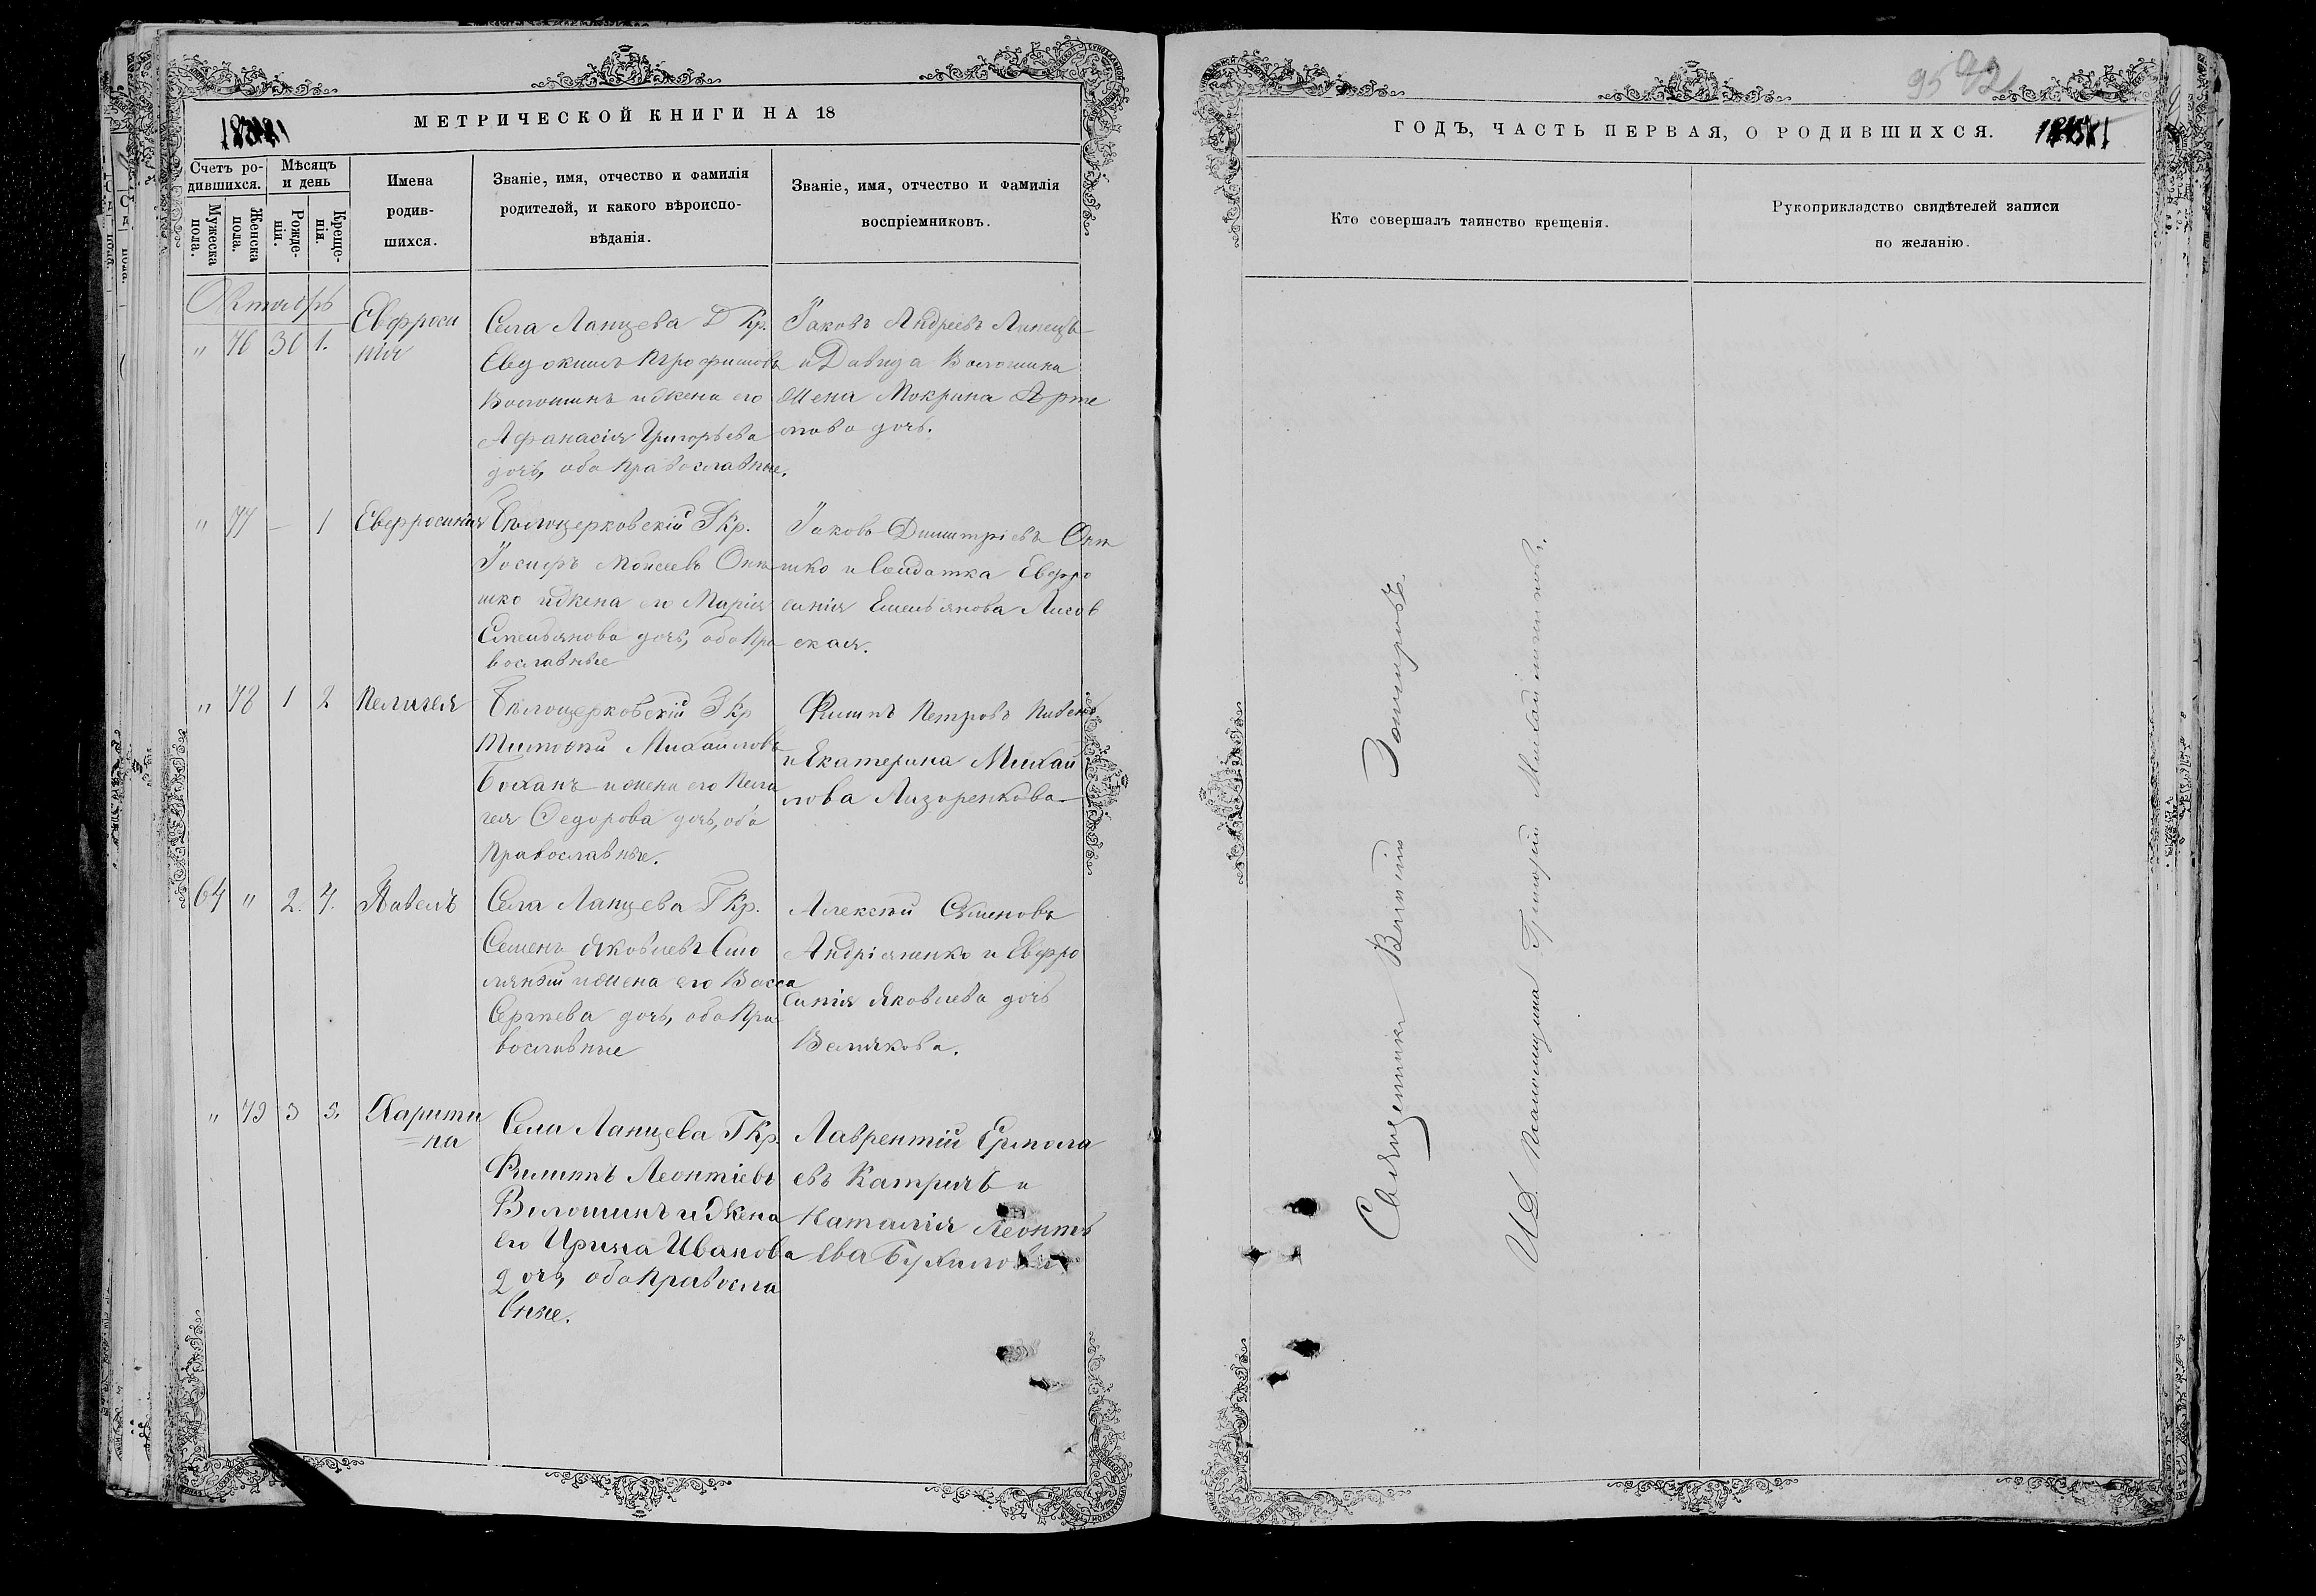 МЕТРИЧЕСКОЙ КНИГИ НА 18
Счетъ ро-
дившихся.
Мѣсяцъ
и день
Мужеска
пола.
Женска
пола.
Рожде-
нія.
Креще-
нія.
Имена
родив-
шихся.
Званіе, имя, отчество и фамилія
родителей, и какого вѣроиспо-
вѣданія.
Званіе, имя, отчество и фамилія
воспріемниковъ.
Октябрь
" 76 30 1.
Евфроси
нія
Села Ланцева Кр.
Евдокимъ Трофимовъ
Волошинъ и жена его
Афанасія Григорьева
дочь, оба православные.
Іаковъ Андреевъ
и Давида Волошина
жена Мокрина Арте
мова дочь.
" 77 — 1
Евфросинія
Бѣлоцерковскій Г Кр.
Іосифъ Моисеевъ Они
шко и жена его Марія
Емельянова дочь, оба пра
вославные
Іаковъ Димитріевъ Они
шко и Солдатка Евфро
синія Емельянова Лисов
ская.
" 78 1 2
Пелагея
Бѣлоцерковскій Г Кр
Тимофей Михайловъ
Боханъ и жена его Пела
гея Федорова дочь, оба
православные.
Филипъ Петровъ
и Екатерина Михай
лова Лазоренкова
64 " 2. 4.
Павелъ
Села Ланцева Г Кр.
Семенъ Яковлевъ Смо
ляный и жена его Васса
Сергѣева дочь, оба пра-
вославные
Алексѣй Семеновъ
Андріяненко и Евфро
синія Яковлева дочь
Великова.
" 79 3 5.
Харити
=на
Села Ланцева Г Кр.
Филиппъ Леонтіевъ
Волошинъ и жена
его Ирина Иванова
дочь, оба правосла
вные.
Лаврентій Ермола
евъ Катричъ и
Наталія Леонть
ева
95
ГОДЪ, ЧАСТЬ ПЕРВАЯ, О РОДИВШИХСЯ.
Кто совершалъ таинство крещенія.
Рукоприкладство свидѣтелей записи
по желанію.
Священникъ Василій
И.Д. Псаломщика Григорій